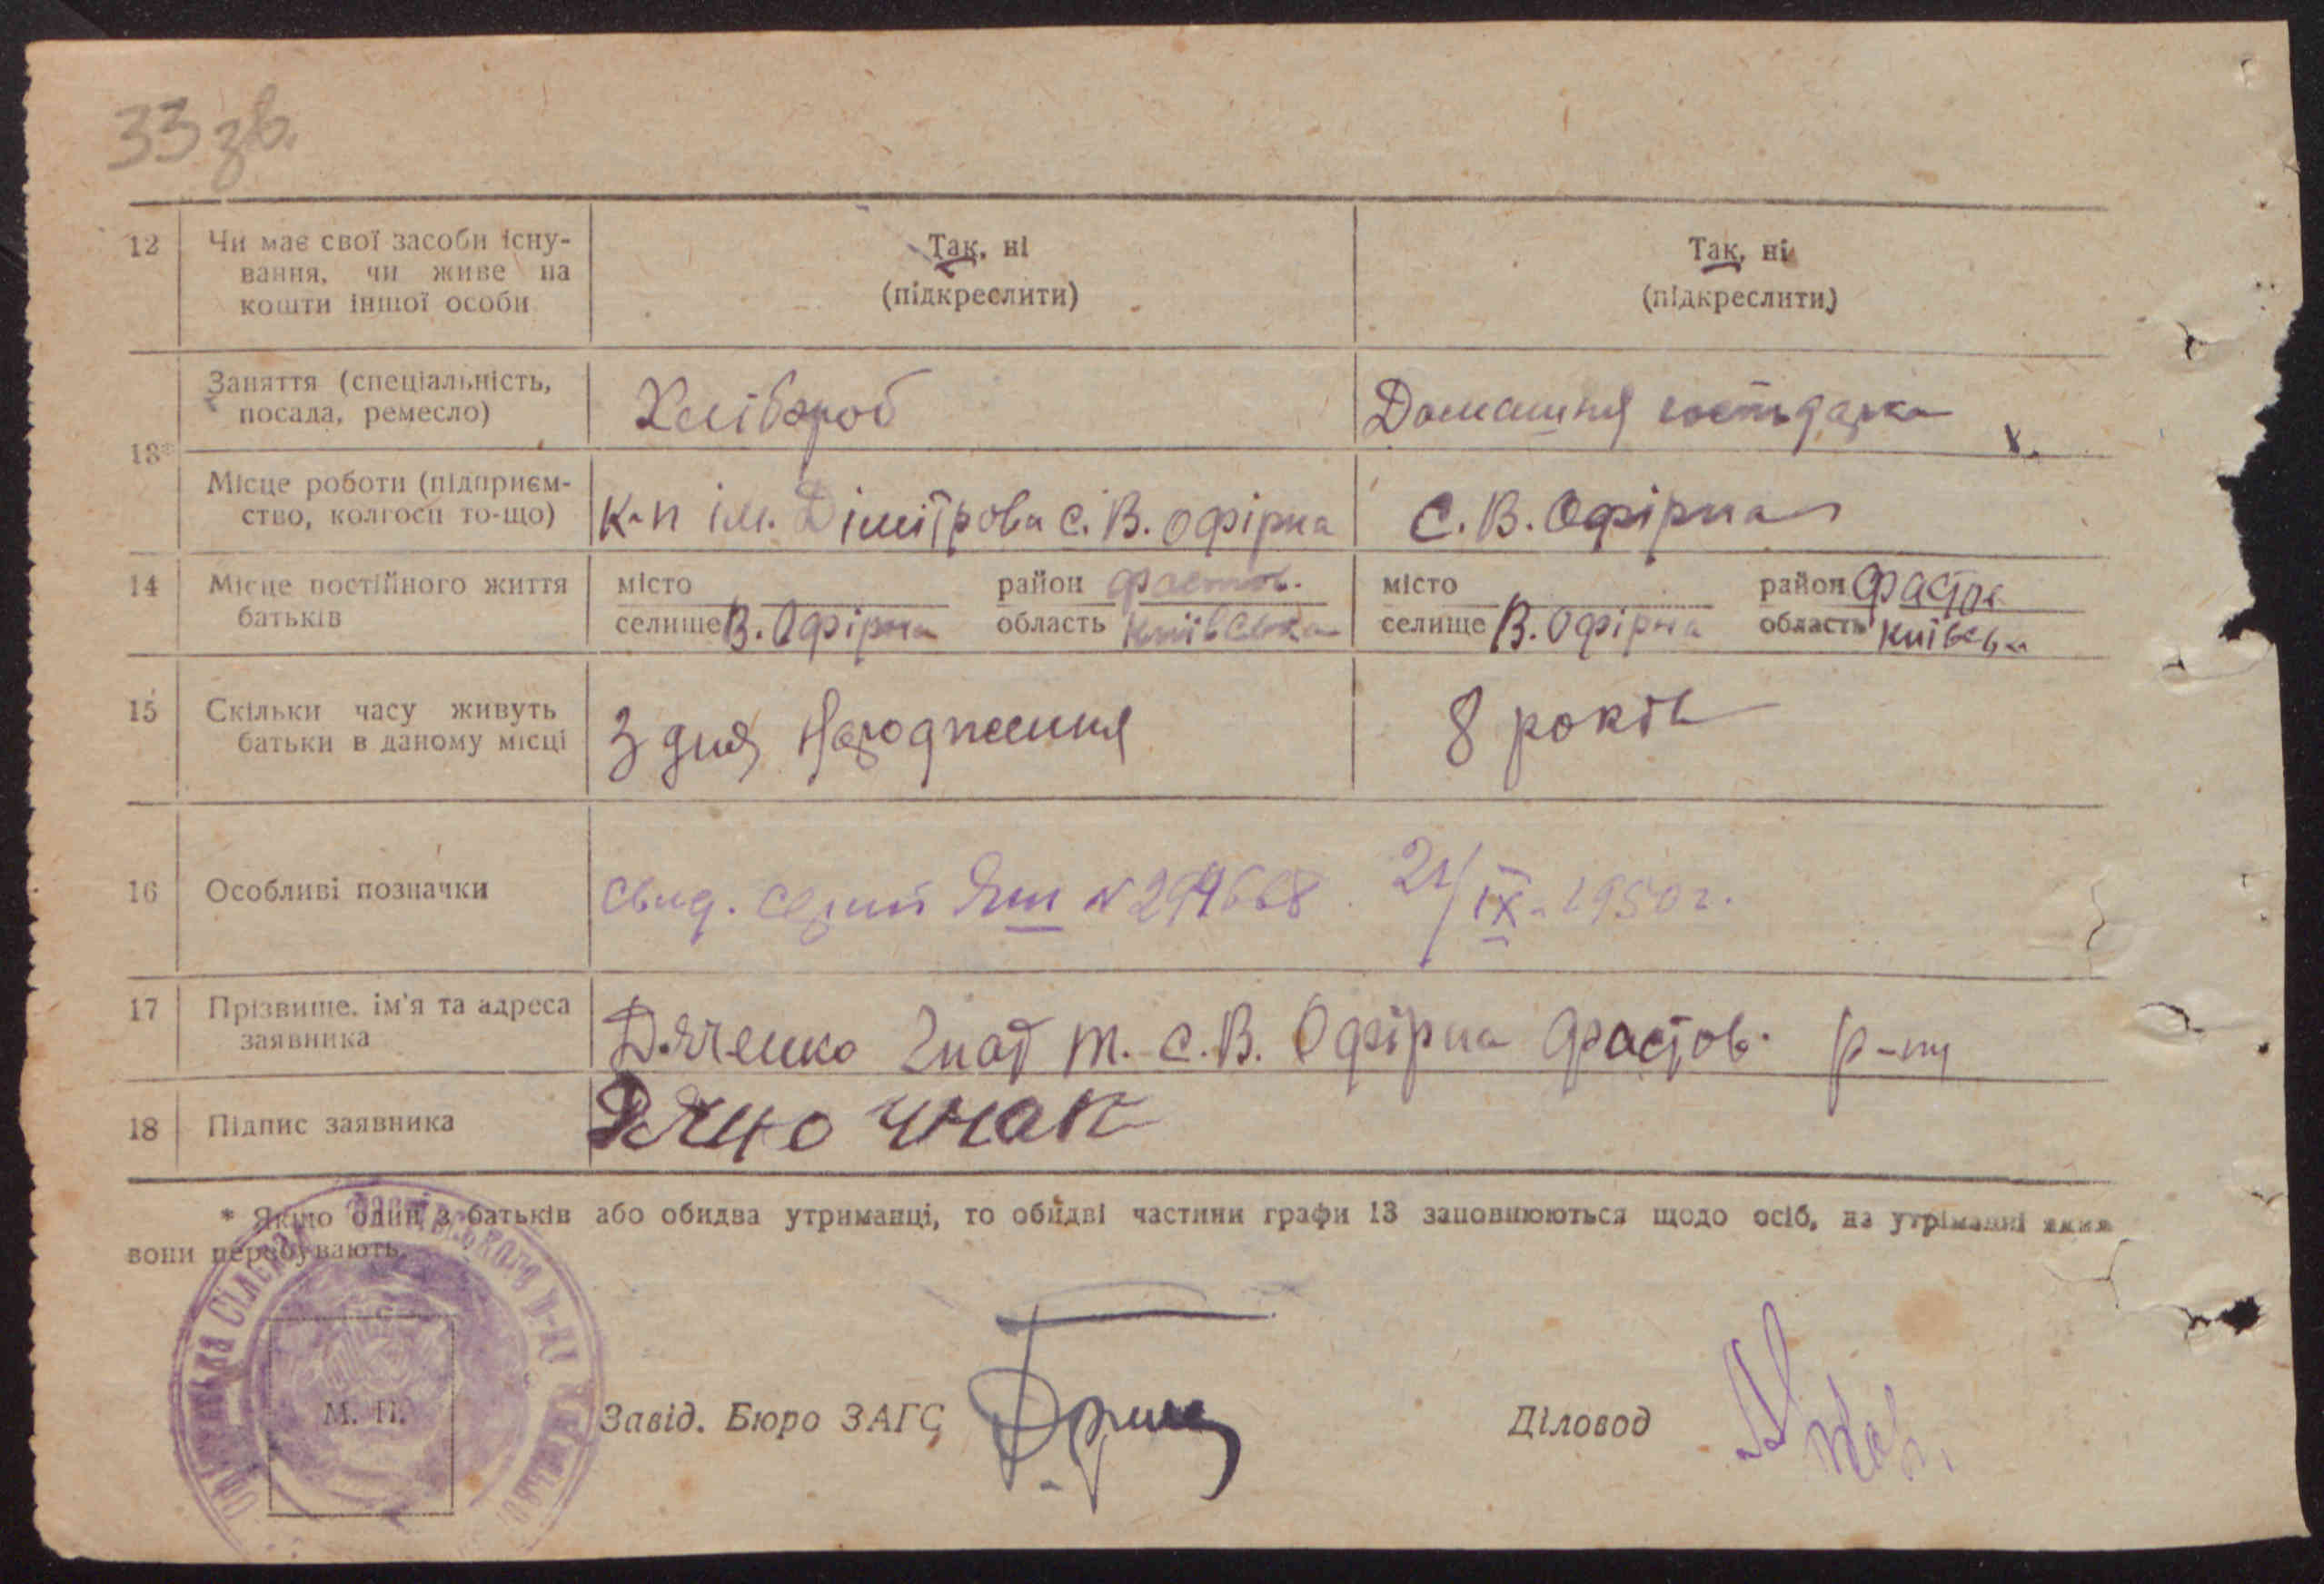 33 зв.
12 Чи має свої засоби існу- Так, ні Так, ні
вання, чи живе на (підкреслити) (підкреслити)
кошти іншої особи
13* Заняття (спеціальність, Хлібороб Домашня
посада, ремесло)
Місце роботи (підприєм- К-п ім. Дімітрова с. В. Офірна С. В. Офірна
ство, колгосп то-що)
14 Місце постійного життя місто район Фастов. місто район Фастов
батьків селище В. Офірна область Київська селище В. Офірна область Київська
15 Скільки часу живуть З дня Народження 8 років
батьки в даному місці
16 Особливі позначки свид. серий № 299668 21/IX-1950г.
17 Прізвище, ім'я та адреса Дяченко Гнат т. с. В. Офірна Фастов. р-ну
заявника
18 Підпис заявника
* Якщо один з батьків або обидва утриманці, то обидві частини графи 13 заповнюються щодо осіб, на утріманні яких
вони перебувають.
М. П.
Завід. Бюро ЗАГС Діловод